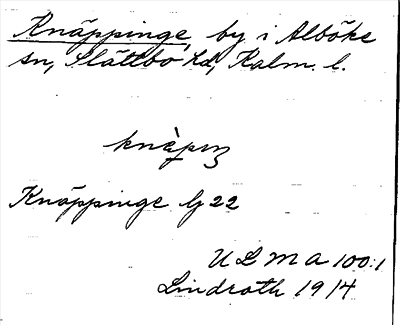 Knäppinge, by i Alböke
sn, Slättbo hd, Kalm. l.
Knäppinge Gj 22
ULMA 100:1
Lindroth 1914